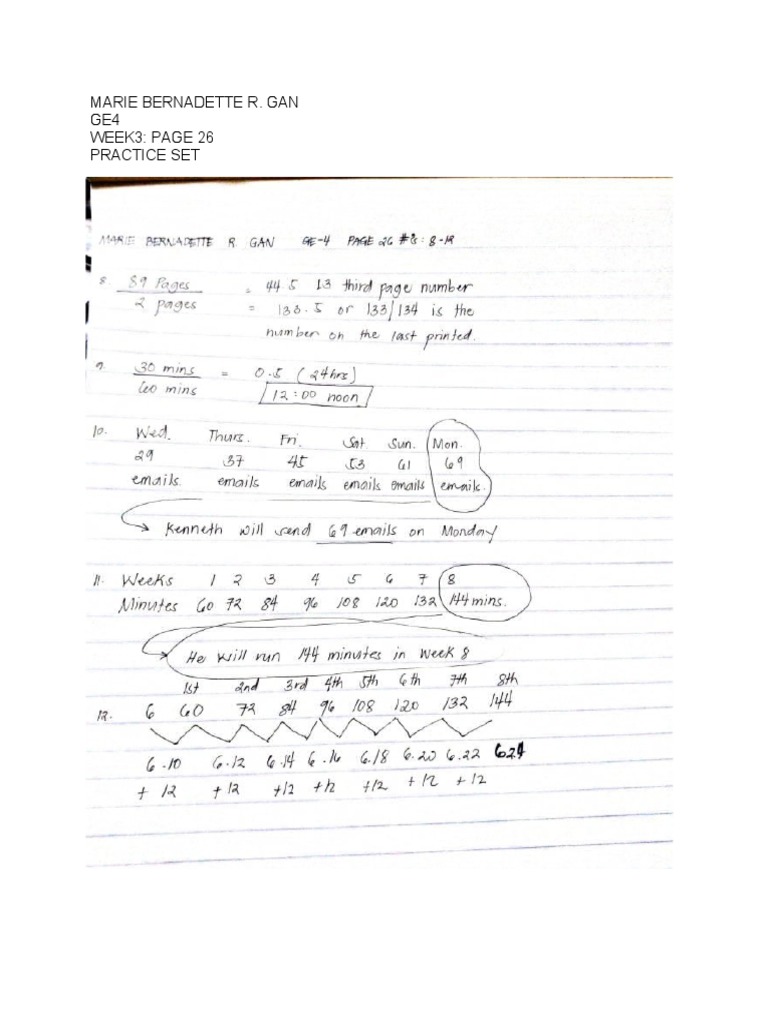 MARIE BERNADETTE R. GAN
GE4
WEEK3: PAGE 26
PRACTICE SET
MARIE BERNADETTE R. GAN GE-4 PAGE 26 #8: 8-12
8. 89 Pages = 44.5 13 third page number
2 pages = 133.5 or 133/134 is the
number on the last printed.
9. 30 mins = 0.5 (24hrs)
60 mins 12:00 noon
10. Wed. Thurs. Fri. Sat Sun. Mon.
29 37 45 53 61 69
emails. emails emails emails emails emails.
Kenneth will send 69 emails on Monday
11. Weeks 1 2 3 4 5 6 7 8
Minutes 60 72 84 96 108 120 132 144 mins.
He will run 144 minutes in week 8
1st 2nd 3rd 4th 5th 6th 7th 8th
12. 6 60 72 84 96 108 120 132 144
6.10 6.12 6.14 6.16 6.18 6.20 6.22 6.24
+ 12 + 12 +12 +12 +12 +12 +12